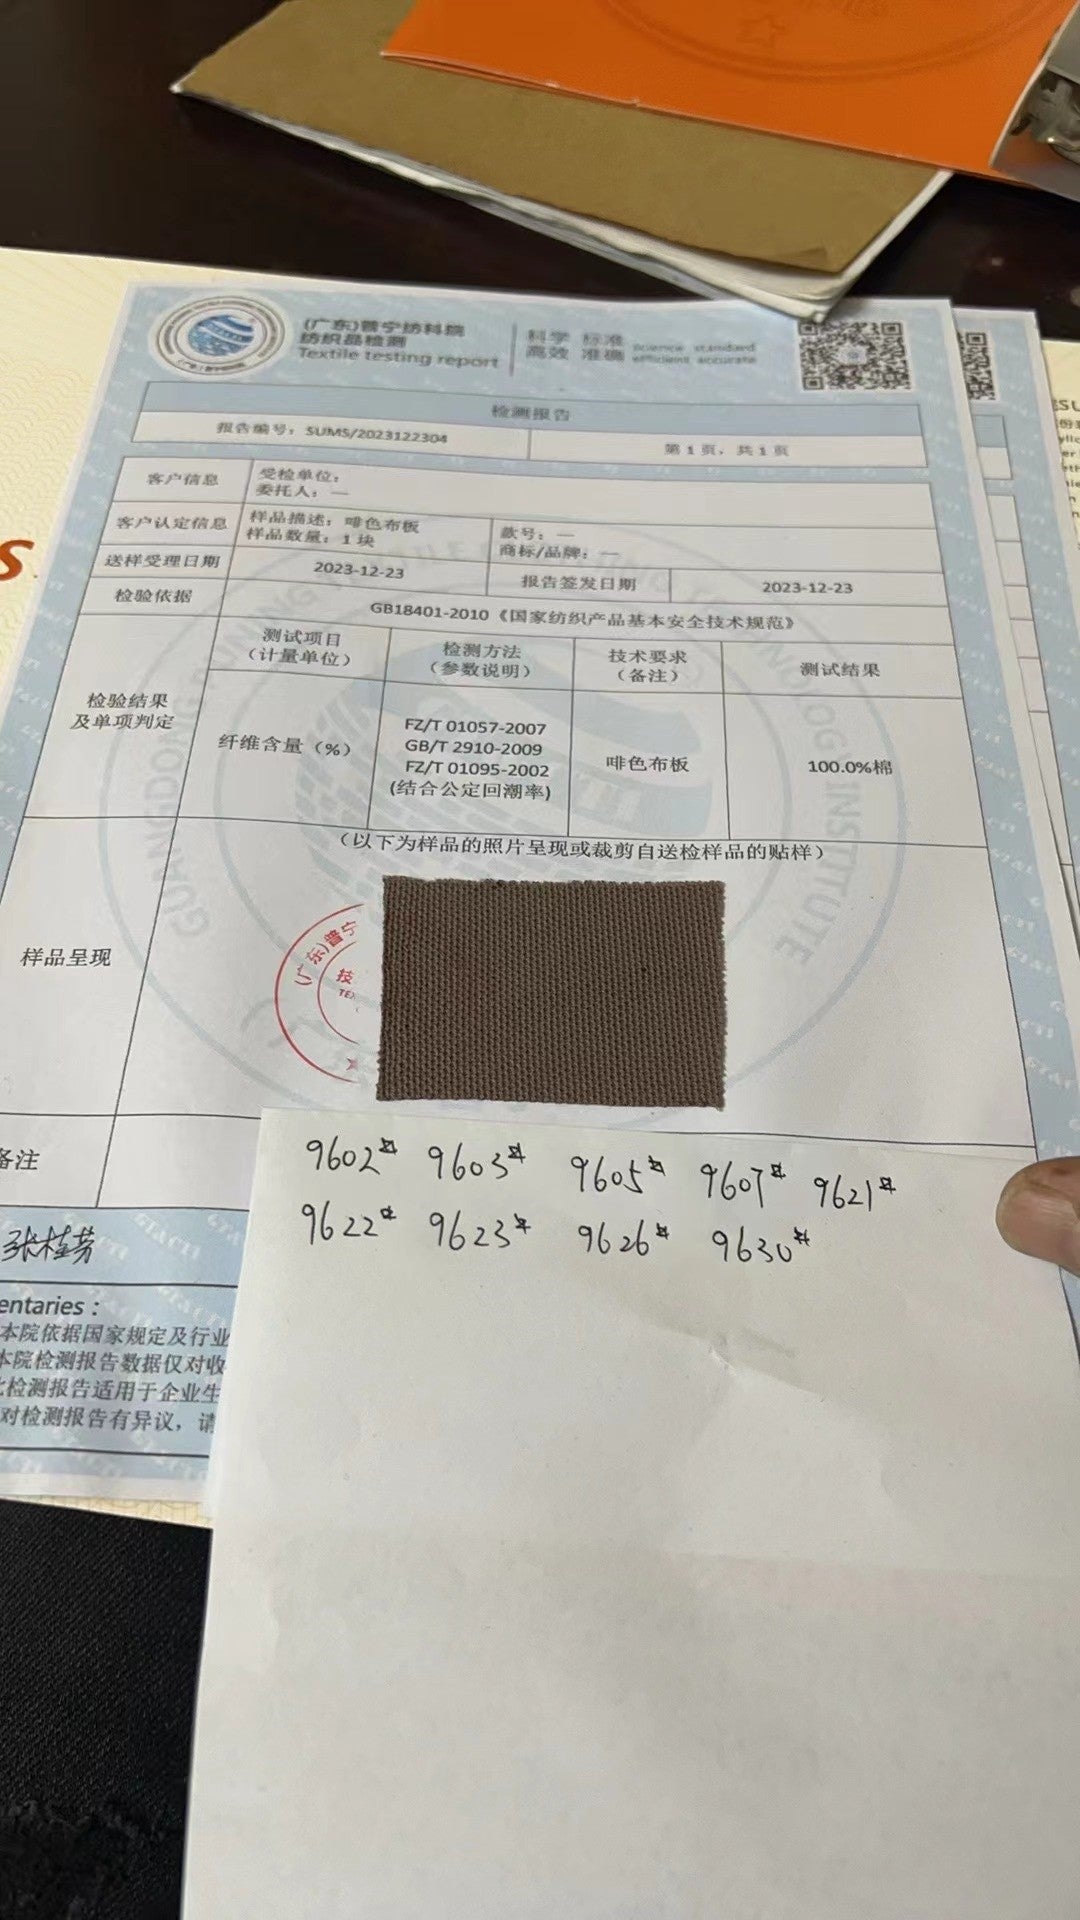 (广东)普宁纺科院
纺织品检测
Textile testing report
科学 标准
高效 准确
science standard
efficient accurate
检测报告
报告编号：SUMS/2023122304
第 1 页，共 1 页
客户信息
受检单位：
委托人：—
客户认定信息
样品描述：啡色布板
样品数量：1 块
款号：—
商标/品牌：—
送样受理日期
2023-12-23
报告签发日期
2023-12-23
检验依据
GB18401-2010《国家纺织产品基本安全技术规范》
检验结果
及单项判定
测试项目
（计量单位）
检测方法
（参数说明）
技术要求
（备注）
测试结果
纤维含量（%）
FZ/T 01057-2007
GB/T 2910-2009
FZ/T 01095-2002
(结合公定回潮率)
啡色布板
100.0%棉
（以下为样品的照片呈现或裁剪自送检样品的贴样）
样品呈现
(广东)普宁
技
TEX
备注
9602# 9603# 9605# 9607# 9621#
9622# 9623# 9626# 9630#
张桂芳
entaries：
本院依据国家规定及行业
本院检测报告数据仅对收
检测报告适用于企业生
对检测报告有异议，请
INSTITUTE